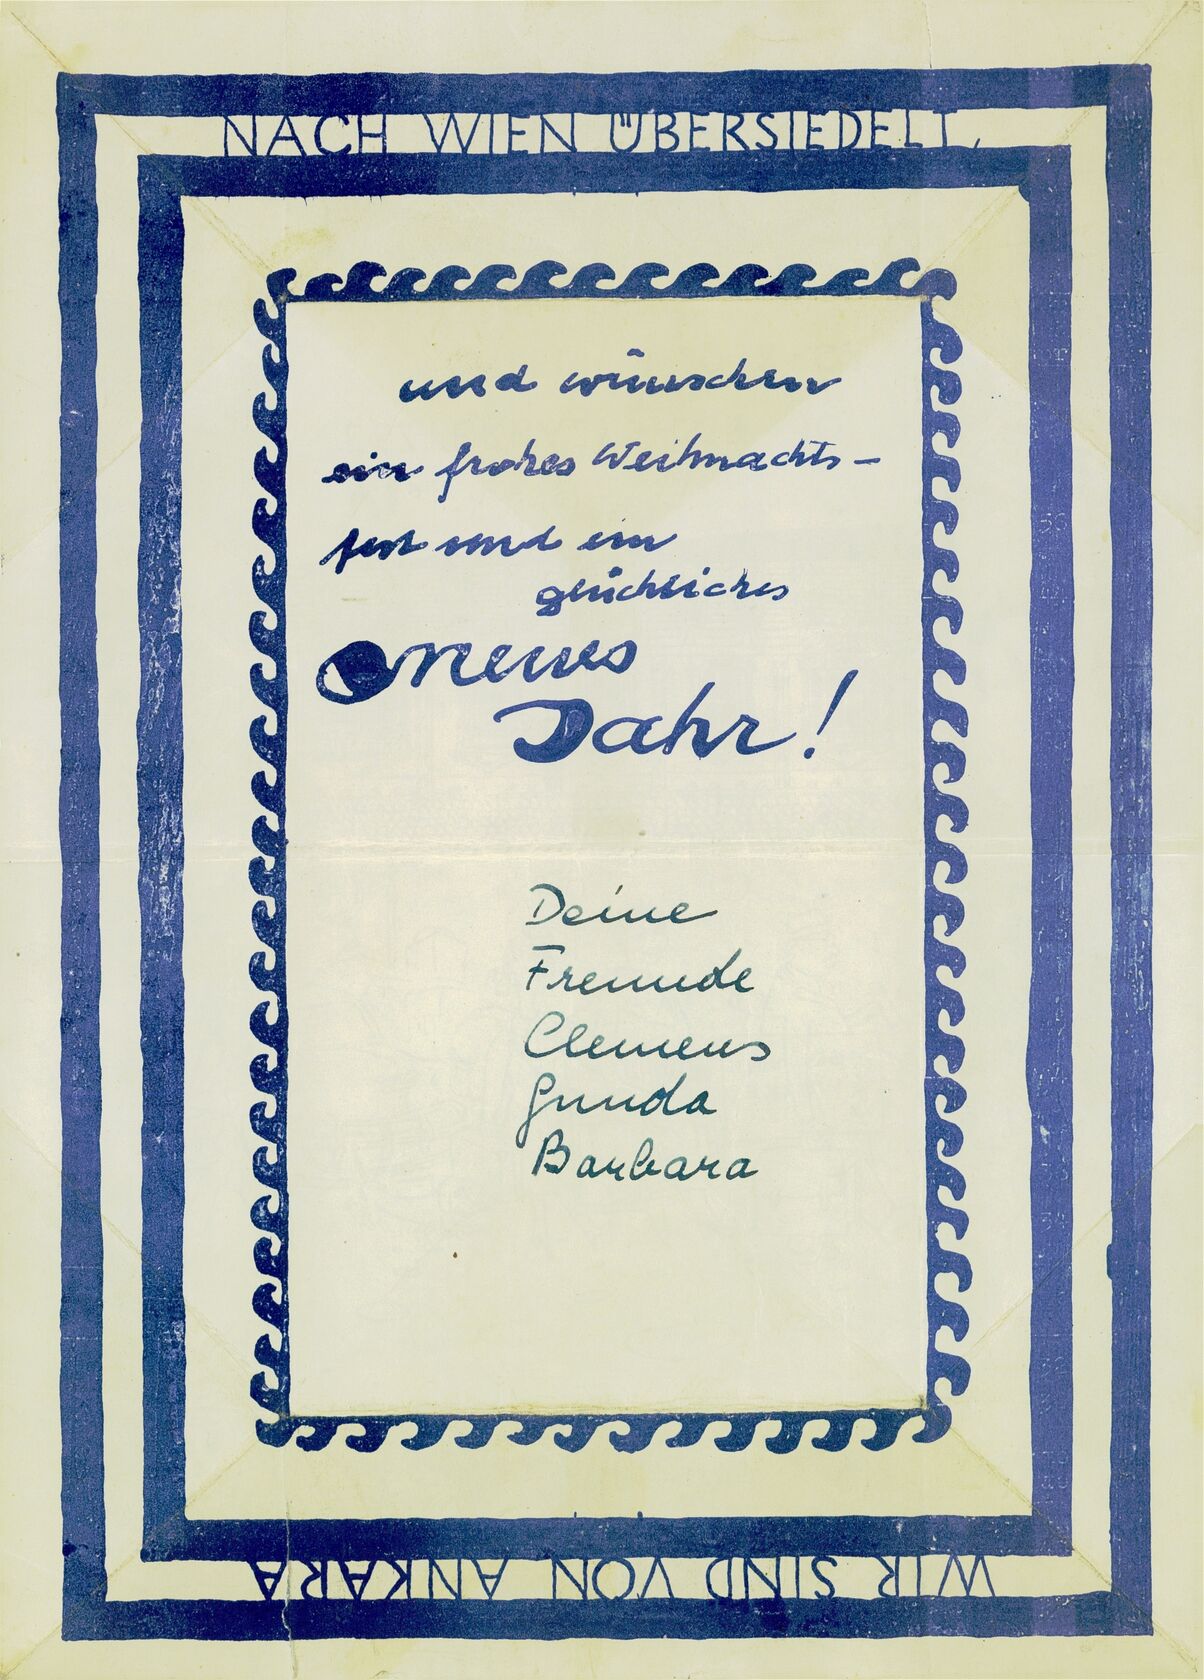 WIR SIND VON ANKARA
NACH WIEN ÜBERSIEDELT,
und wünschen
ein frohes Weihnachts-
fest und ein
glückliches
neues
Jahr!
Deine
Freunde
Clemens
Gunda
Barbara